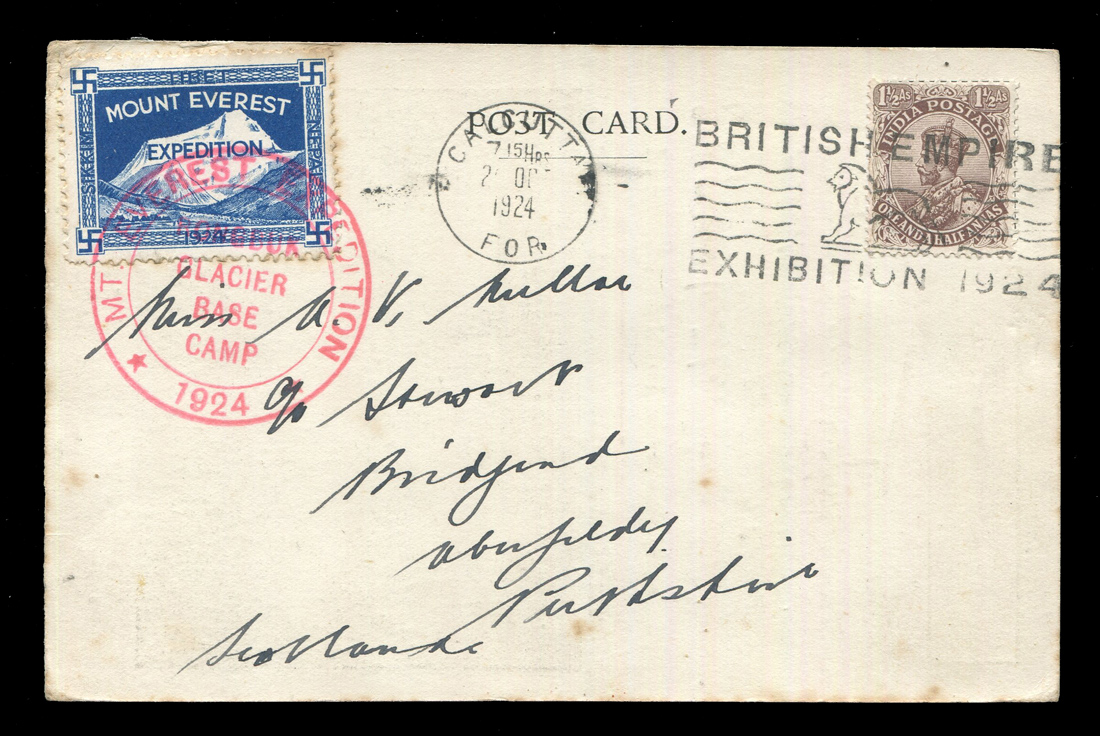 TIBET
MOUNT EVEREST
EXPEDITION
SIKKHIM
NEPAL
1924
MT. EVEREST EXPEDITION
RONGBUK
GLACIER
BASE
CAMP
1924
POST CARD.
CALCUTTA
7 15HRS
OCT
1924
FOR
BRITISH EMPIRE
EXHIBITION 1924
1½As 1½As
INDIA POSTAGE
ONE AND A HALF ANNAS
Miss A. V. Mullar
c/o Stewart
Bridgend
Aberfeldy
Perthshire
Scotland